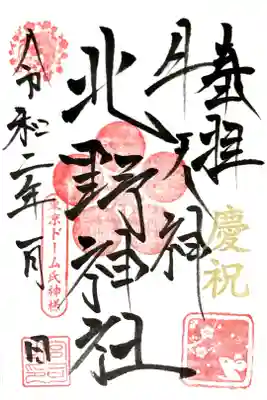 奉拝
慶祝
牛天神
北野神社
令和二年一月
日
東京ドーム氏神様